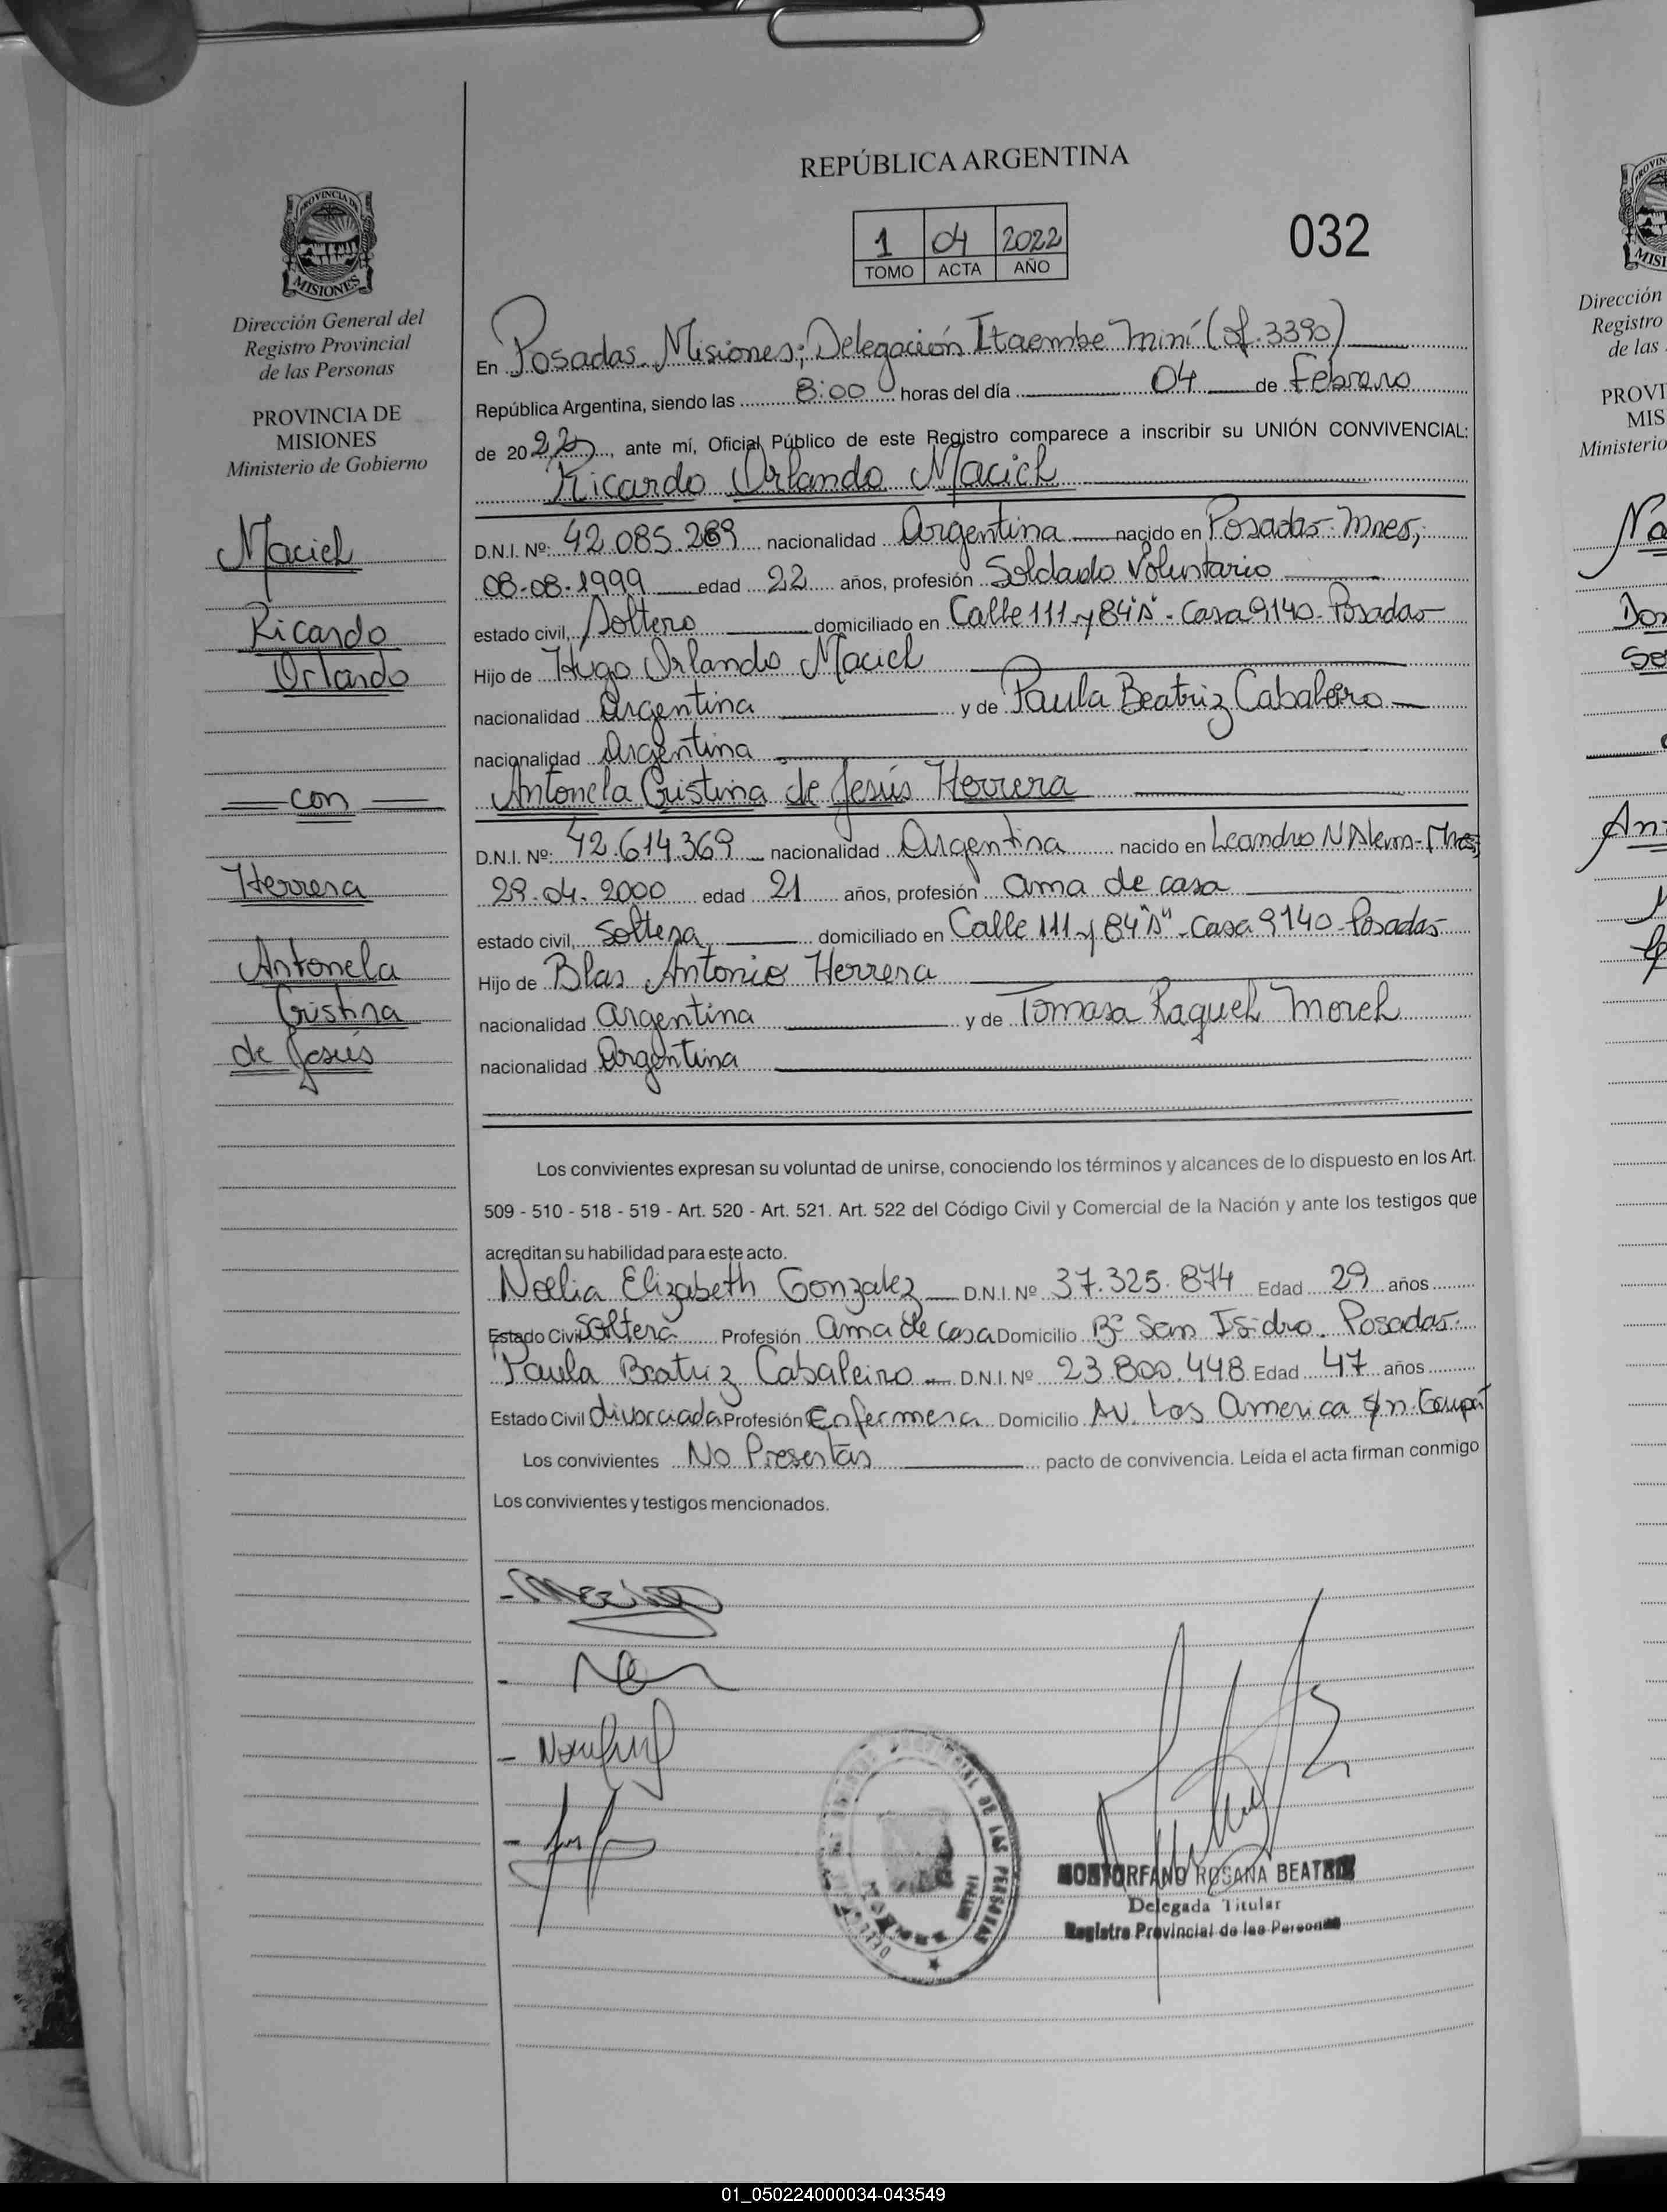 REPÚBLICA ARGENTINA
1 04 2022
TOMO ACTA AÑO
032
PROVINCIA DE
MISIONES
Dirección General del
Registro Provincial
de las Personas
PROVINCIA DE
MISIONES
Ministerio de Gobierno
Maciel
Ricardo
Orlando
con
Herrera
Antonela
Cristina
de Jesús
En Posadas. Misiones; Delegación Itaembe Miní (of. 3390)
República Argentina, siendo las 8:00 horas del día 04 de Febrero
de 2022, ante mí, Oficial Público de este Registro comparece a inscribir su UNIÓN CONVIVENCIAL:
Ricardo Orlando Maciel
D.N.I. Nº: 42.085.269 nacionalidad Argentina nacido en Posadas. Mnes;
08-08-1999 edad 22 años, profesión Soldado Voluntario
estado civil, Soltero domiciliado en Calle 111 y 84"A" - Casa 9140 - Posadas
Hijo de Hugo Orlando Maciel
nacionalidad Argentina y de Paula Beatriz Cabaleiro
nacionalidad Argentina
Antonela Cristina de Jesús Herrera
D.N.I. Nº: 42.614.369 nacionalidad Argentina nacido en Leandro N Alem - Mnes;
29-04-2000 edad 21 años, profesión ama de casa
estado civil, Soltera domiciliado en Calle 111 y 84"A" - Casa 9140 - Posadas
Hijo de Blas Antonio Herrera
nacionalidad Argentina y de Tomasa Raquel Morel
nacionalidad Argentina
Los convivientes expresan su voluntad de unirse, conociendo los términos y alcances de lo dispuesto en los Art.
509 - 510 - 518 - 519 - Art. 520 - Art. 521. Art. 522 del Código Civil y Comercial de la Nación y ante los testigos que
acreditan su habilidad para este acto.
Noelia Elizabeth Gonzalez D.N.I. Nº 37.325.874 Edad 29 años
Estado Civil Soltera Profesión Ama de casa Domicilio Bº San Isidro. Posadas.
Paula Beatriz Cabaleiro D.N.I. Nº 23.800.448 Edad 47 años
Estado Civil divorciada Profesión Enfermera Domicilio Av. Las America s/n. Garupá
Los convivientes No Presentan pacto de convivencia. Leída el acta firman conmigo
Los convivientes y testigos mencionados.
MONTORFANO ROSANA BEATRIZ
Delegada Titular
Registro Provincial de las Personas
01_050224000034-043549